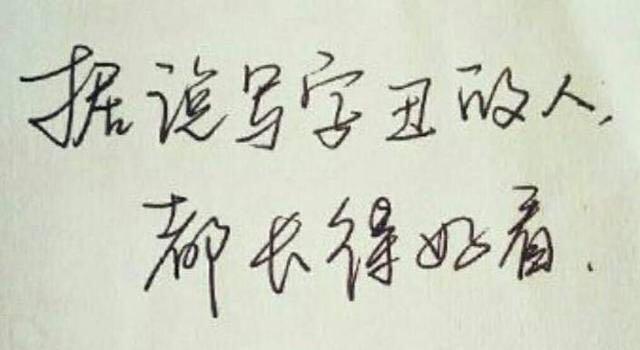 据说写字丑的人,
都长得好看.